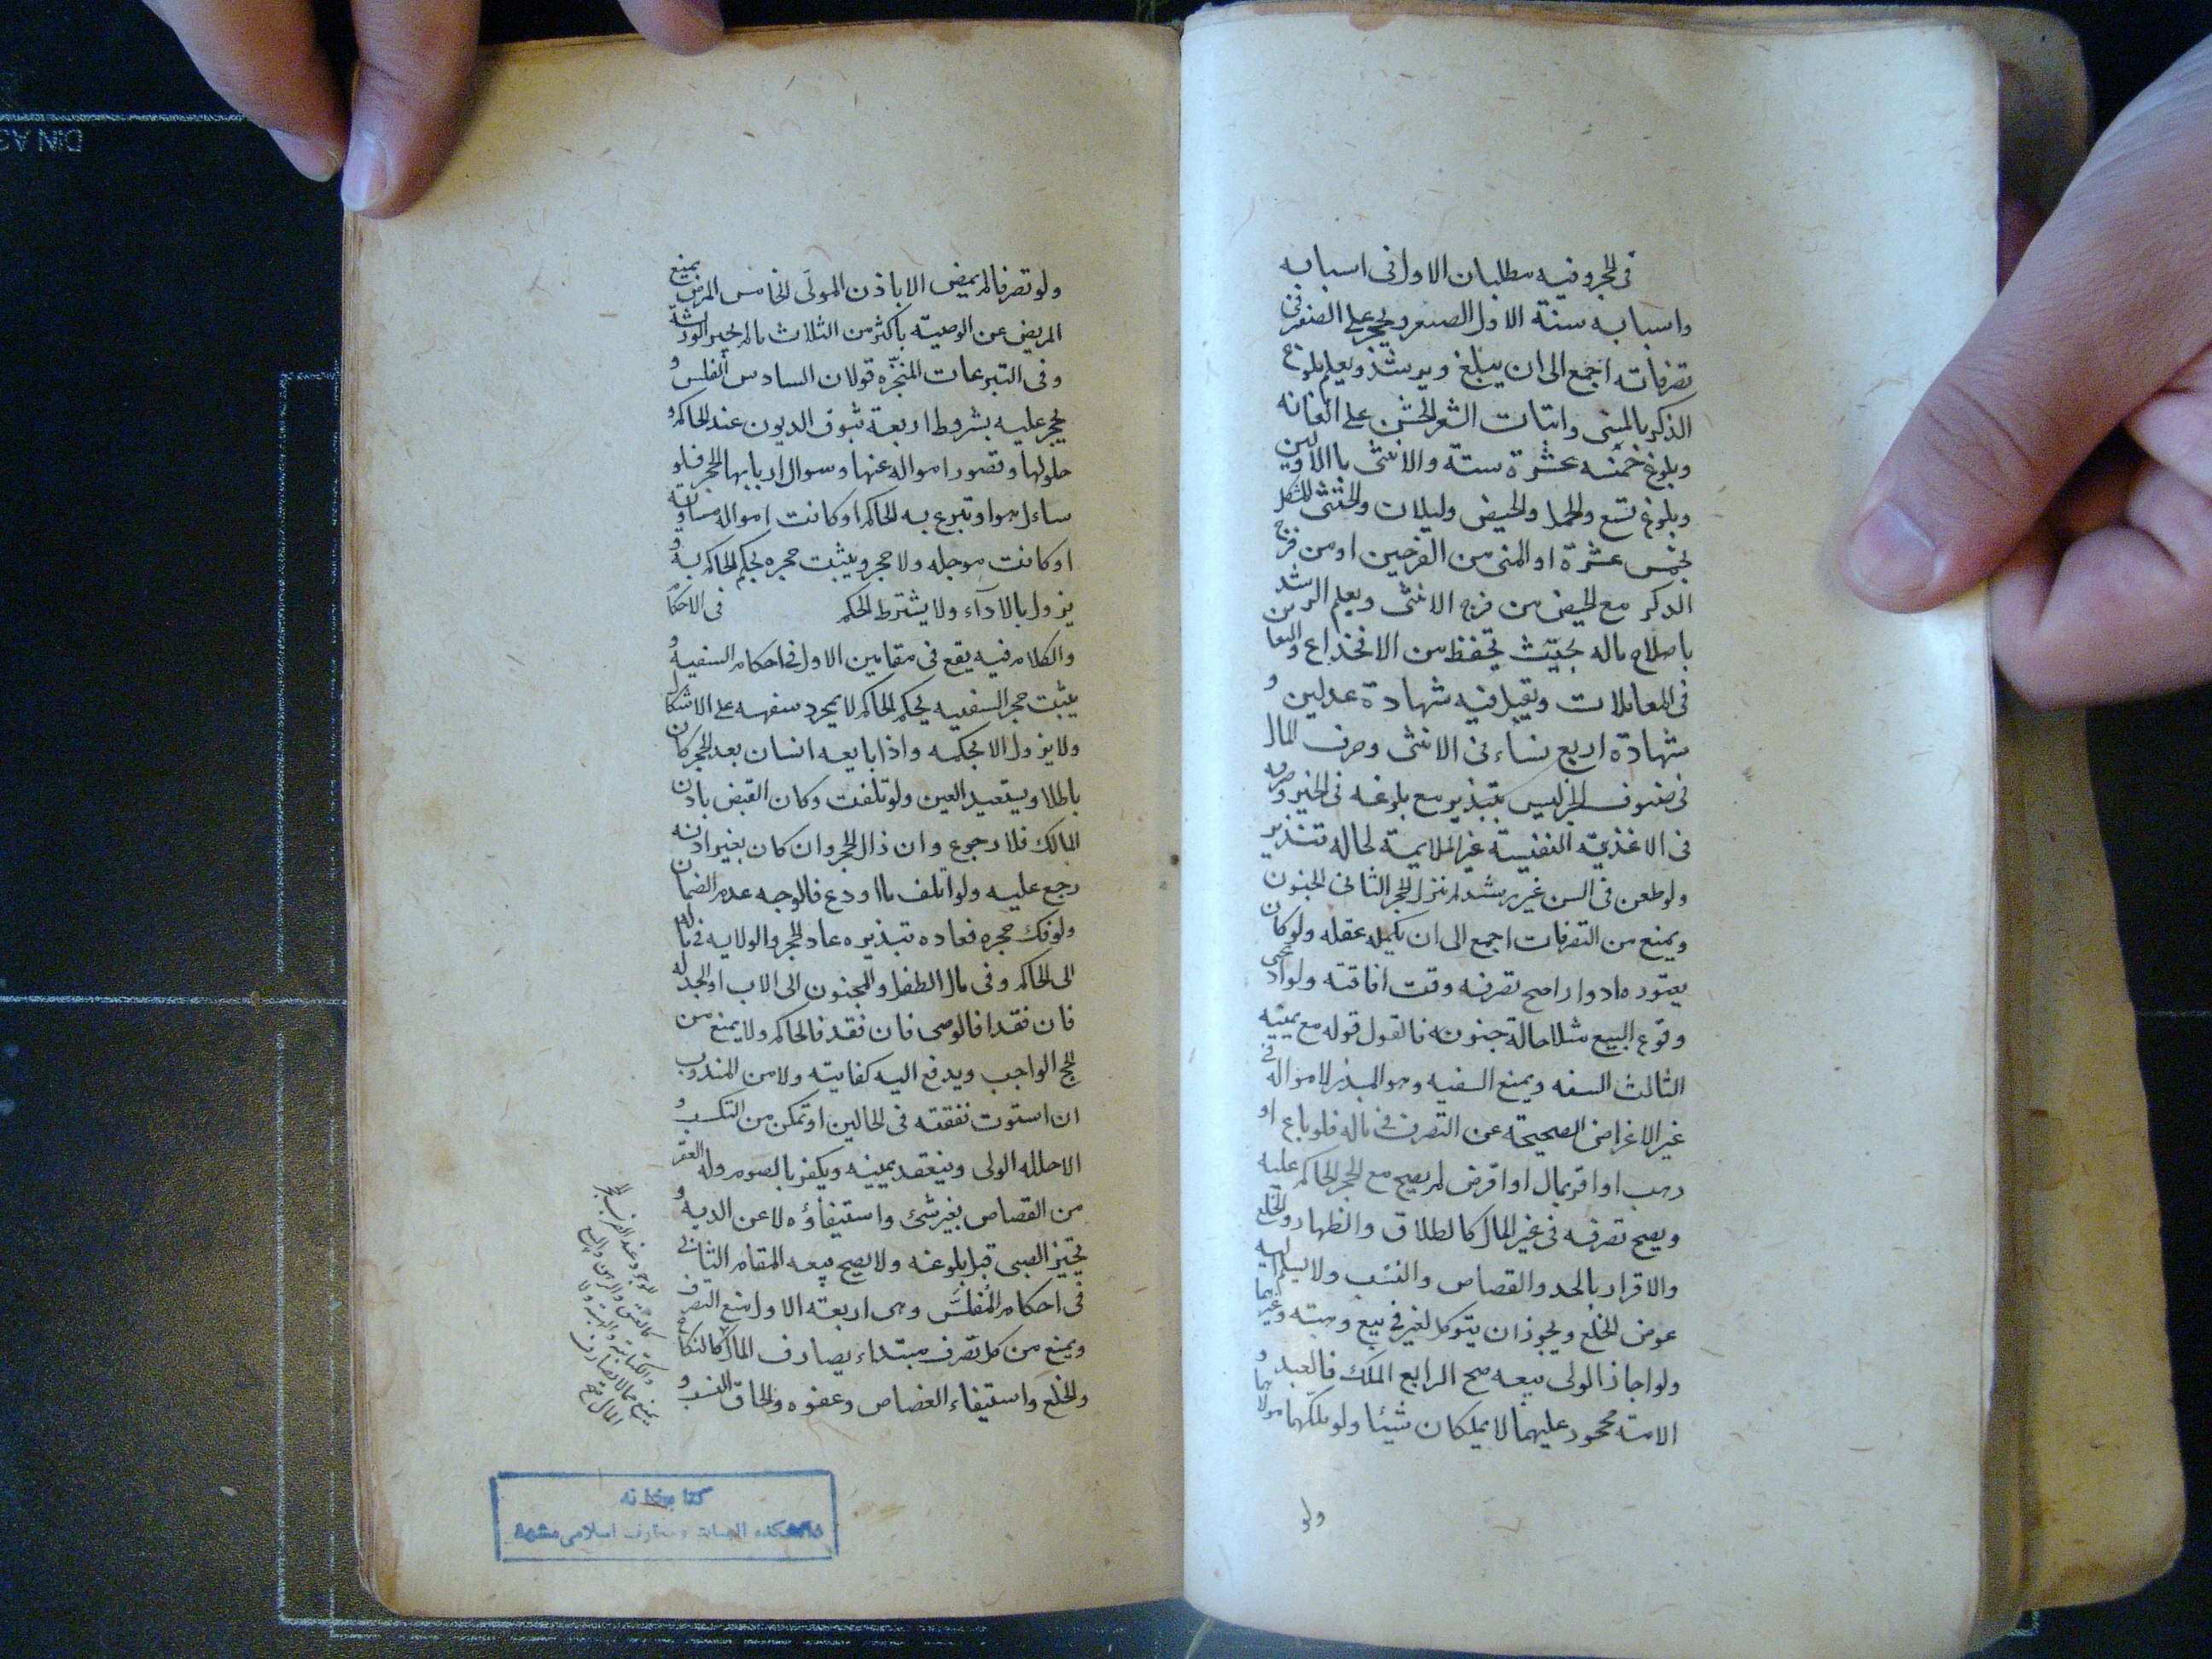 في الحجر وفيه مطلبان الاول في اسبابه
واسبابه ستة الاول الصغر ويحجر على الصغير في
تصرفاته اجمع الى ان يبلغ ويرشد ويعلم بلوغ
الذكر بالمنى وانبات الشعر الخشن على العانه
وبلوغ خمسه عشرة سنة والانثى بالاولين
وبلوغ تسع والحمل والحيض دليلان والخنثى المشكل
بخمس عشرة او المنى من الفرجين او من فرج
الذكر مع الحيض من فرج الانثى ويعلم الرشد
باصلاح ماله بحيث يتحفظ من الانخداع والتغابن
في المعاملات ويقبل فيه شهادة عدلين و
شهادة اربع نساء في الانثى وصرف المال
في صنوف الخير ليس بتبذير مع بلوغه في الخير وصرفه
في الاغذية النفيسة غير الملايمة لحاله تبذير
ولو طعن في السن غير رشيد لم يزل الحجر الثاني الجنون
ويمنع من التصرفات اجمع الى ان يكمل عقله ولو كان
يعتوره ادوارا صح تصرفه وقت افاقته ولو ادعى
وقوع البيع مثلا حالة جنونه فالقول قوله مع يمينه
الثالث السفه ويمنع السفيه وهو المبذر لامواله في
غير الاغراض الصحيحة عن التصرف في ماله فلو باع او
وهب او اقر بمال او اقرض لم يصح مع الحجر الحاكم عليه
ويصح تصرفه في غير المال كالطلاق والظهار والخلع
والاقرار بالحد والقصاص والنسب ولا يسلم اليه
عوض الخلع ويجوز ان يتوكل لغير في بيع وهبته وغيرهما
ولو اجاز الولى بيعه صح الرابع الملك فالعبد و
الامة محجور عليهما لا يملكان شيئا ولو ملكهما مولاهما
ولو
ولو تصرفا لم يمض الا باذن المولى الخامس المرض يمنع
المريض عن الوصية باكثر من الثلاث مالم يجيز الورثة
وفي التبرعات المنجزه قولان السادس الفلس و
يحجر عليه بشروط اربعة ثبوت الديون عند الحاكم و
حلولها وقصور امواله عنها وسوال اربابها الحجر فلو
سأل هو او تبرع به الحاكم او كانت امواله مساوية
او كانت موجله ولا حجر ويثبت حجره بحكم الحاكم به و
يزول بالاداء ولا يشترط الحكم في الاحكام
والكلام فيه يقع في مقامين الاول في احكام السفيه و
يثبت حجر السفيه بحكم الحاكم لا بمجرد سفهه على الاشكال
ولا يزول الا بحكمه واذا بايعه انسان بعد الحجر كان
باطلا ويستعيد العين ولو تلفت وكان القبض باذن
المالك فلا رجوع وان زال الحجر وان كان بغير اذنه
رجع عليه ولو اتلف ما اودع فالوجه عدم الضمان
ولو فك حجره فعاد تبذيره عاد الحجر والولايه في ماله
الى الحاكم وفي مال الطفل والمجنون الى الاب او الجد له
فان فقدا فالوصى فان فقد فالحاكم ولا يمنع من
الحج الواجب ويدفع اليه كفايته ولا من المندوب
ان استوت نفقته في الحالين او تمكن من التكسب و
الا حلله الولى وينعقد يمينه ويكفر بالصوم وله العفو
من القصاص بغير شئ واستيفاؤه لا عن الديه و
يختبر الصبى قبل بلوغه ولا يصح بيعه المقام الثاني
في احكام المفلس وهى اربعة الاول منع التصرف
ويمنع من كل تصرف مبتداء يصادف المال كالنكاح
والخلع واستيفاء القصاص وعفوه والحاق النسب و
الموجود عند الضرب الحجر
كالعتق والرهن والبيع
والكتابة والهبة ولا
يمنع مما لا يصادف
المال صح
كتابخانه
دانشكده الهيات و معارف اسلامى مشهد